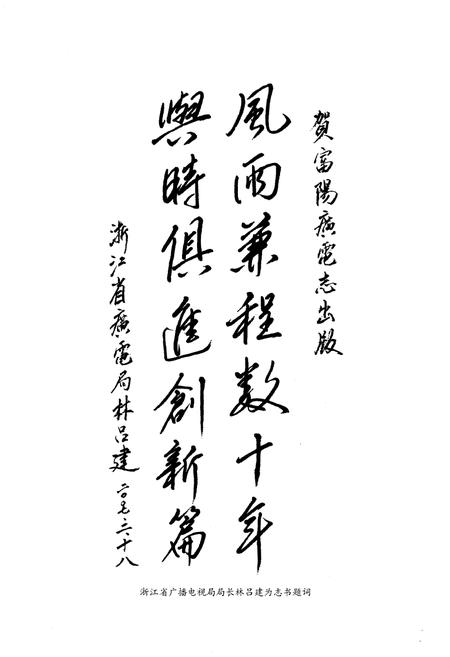 賀富陽廣電志出版
風雨兼程数十年
與時俱進創新篇
浙江省廣電局林吕建 二〇〇七.三.十八
浙江省广播电视局局长林吕建为志书题词